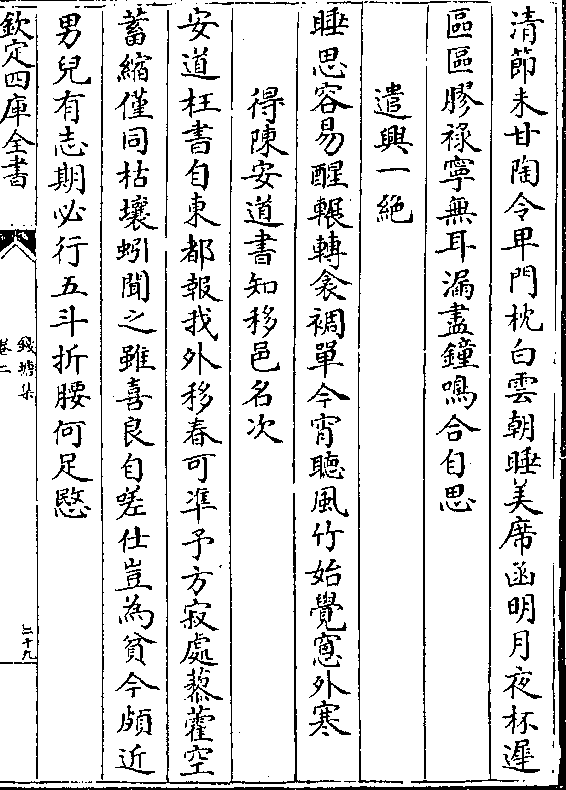 清節未甘陶令卑門枕白雲朝睡美席函明月夜杯遲
區區膠祿寧無耳漏盡鐘鳴合自思
遣興一絶
睡思容易醒輾轉衾裯單今宵聽風竹始覺窓外寒
得陳安道書知移邑名次
安道枉書自東都報我外移春可凖予方寂處藜藿空
蓄縮僅同枯壤蚓聞之雖喜良自嗟仕豈為貧今頗近
男兒有志期必行五斗折腰何足愍
欽定四庫全書
錢塘集
卷二
二十九